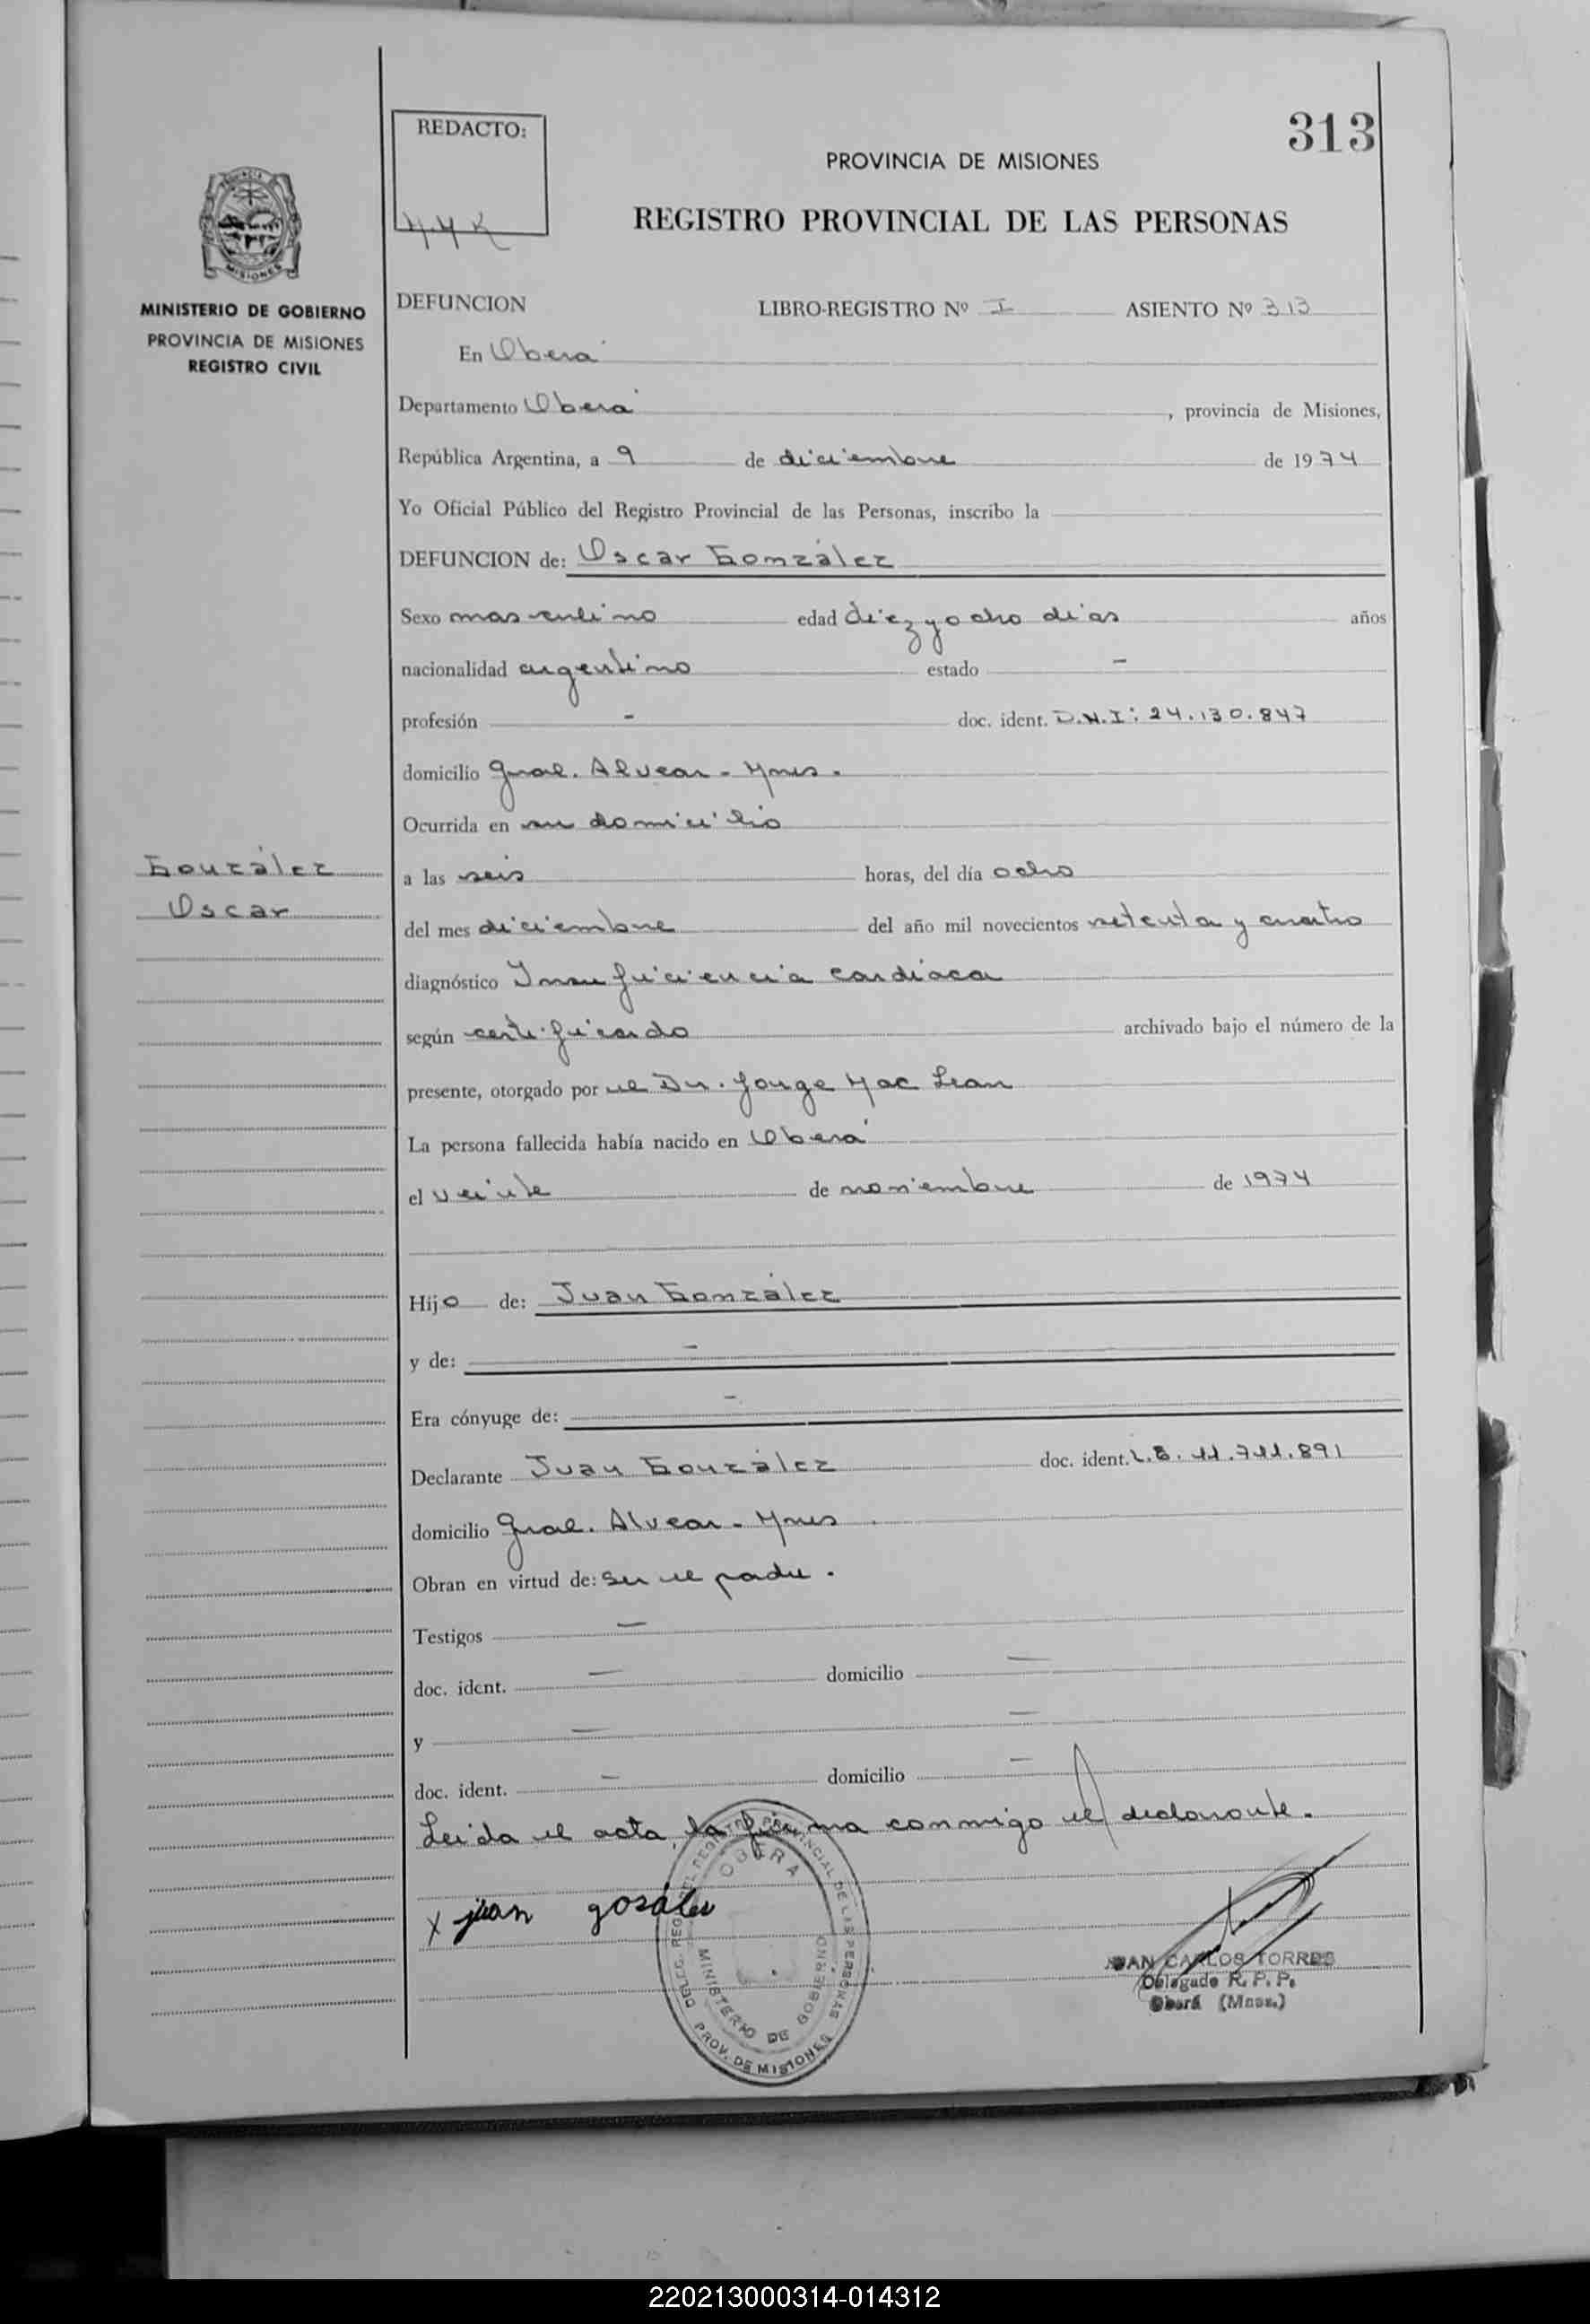 313
REDACTO:
PROVINCIA DE MISIONES
REGISTRO PROVINCIAL DE LAS PERSONAS
MISIONES
MINISTERIO DE GOBIERNO
PROVINCIA DE MISIONES
REGISTRO CIVIL
DEFUNCION LIBRO-REGISTRO Nº I ASIENTO Nº 313
En Oberá
Departamento Oberá, provincia de Misiones,
República Argentina, a 9 de diciembre de 1974
Yo Oficial Público del Registro Provincial de las Personas, inscribo la
DEFUNCION de: Oscar González
Sexo masculino edad diez y ocho días años
nacionalidad argentino estado -
profesión - doc. ident. D.N.I: 24.130.847
domicilio Gral. Alvear - Mnes.
Ocurrida en su domicilio
González
Oscar
a las seis horas, del día ocho
del mes diciembre del año mil novecientos setenta y cuatro
diagnóstico Insuficiencia cardíaca
según certificado archivado bajo el número de la
presente, otorgado por el Dr. Jorge Mac Lean
La persona fallecida había nacido en Oberá
el veinte de noviembre de 1974
Hijo de: Juan González
y de: -
Era cónyuge de: -
Declarante Juan González doc. ident. L.E. 11.711.891
domicilio Gral. Alvear - Mnes
Obran en virtud de: Ser el padre.
Testigos —
doc. ident. — domicilio —
y — —
doc. ident. — domicilio —
Leída el acta, la firma conmigo el declarante.
x juan gosáles
DELEG. REG. DEL REGISTRO PROVINCIAL DE LAS PERSONAS
OBERA
MINISTERIO DE GOBIERNO
PROV. DE MISIONES
JUAN CARLOS TORRES
Delegado R. P. P.
Oberá (Mnes.)
220213000314-014312